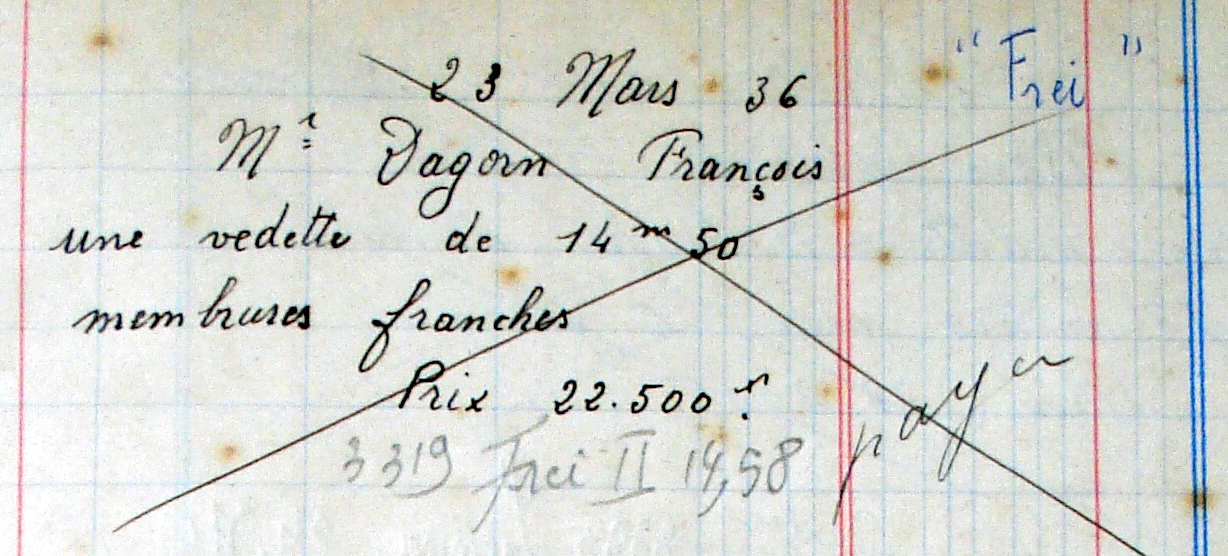 23 Mars 36 "Frei"
Mr Dagorn François
une vedette de 14m50
membrures franches
Prix 22.500 f.
3319 Frei II 14,58
payer